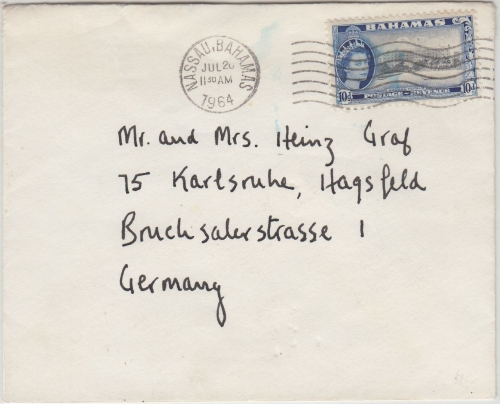 NASSAU, BAHAMAS
JUL 20
11 30 AM
1964
BAHAMAS
10d
POSTAGE REVENUE
10d
Mr. and Mrs. Heinz Graf
75 Karlsruhe, Hagsfeld
Bruchsalerstrasse 1
Germany